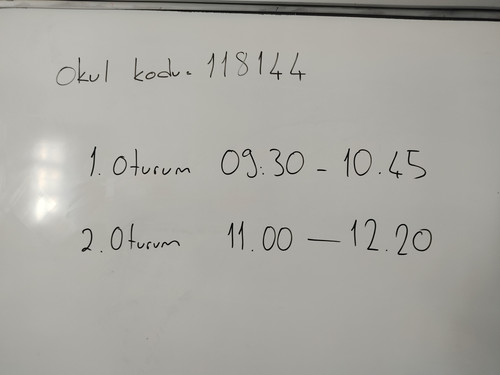 Okul kodu: 118144
1. Oturum 09:30 - 10.45
2. Oturum 11.00 — 12.20